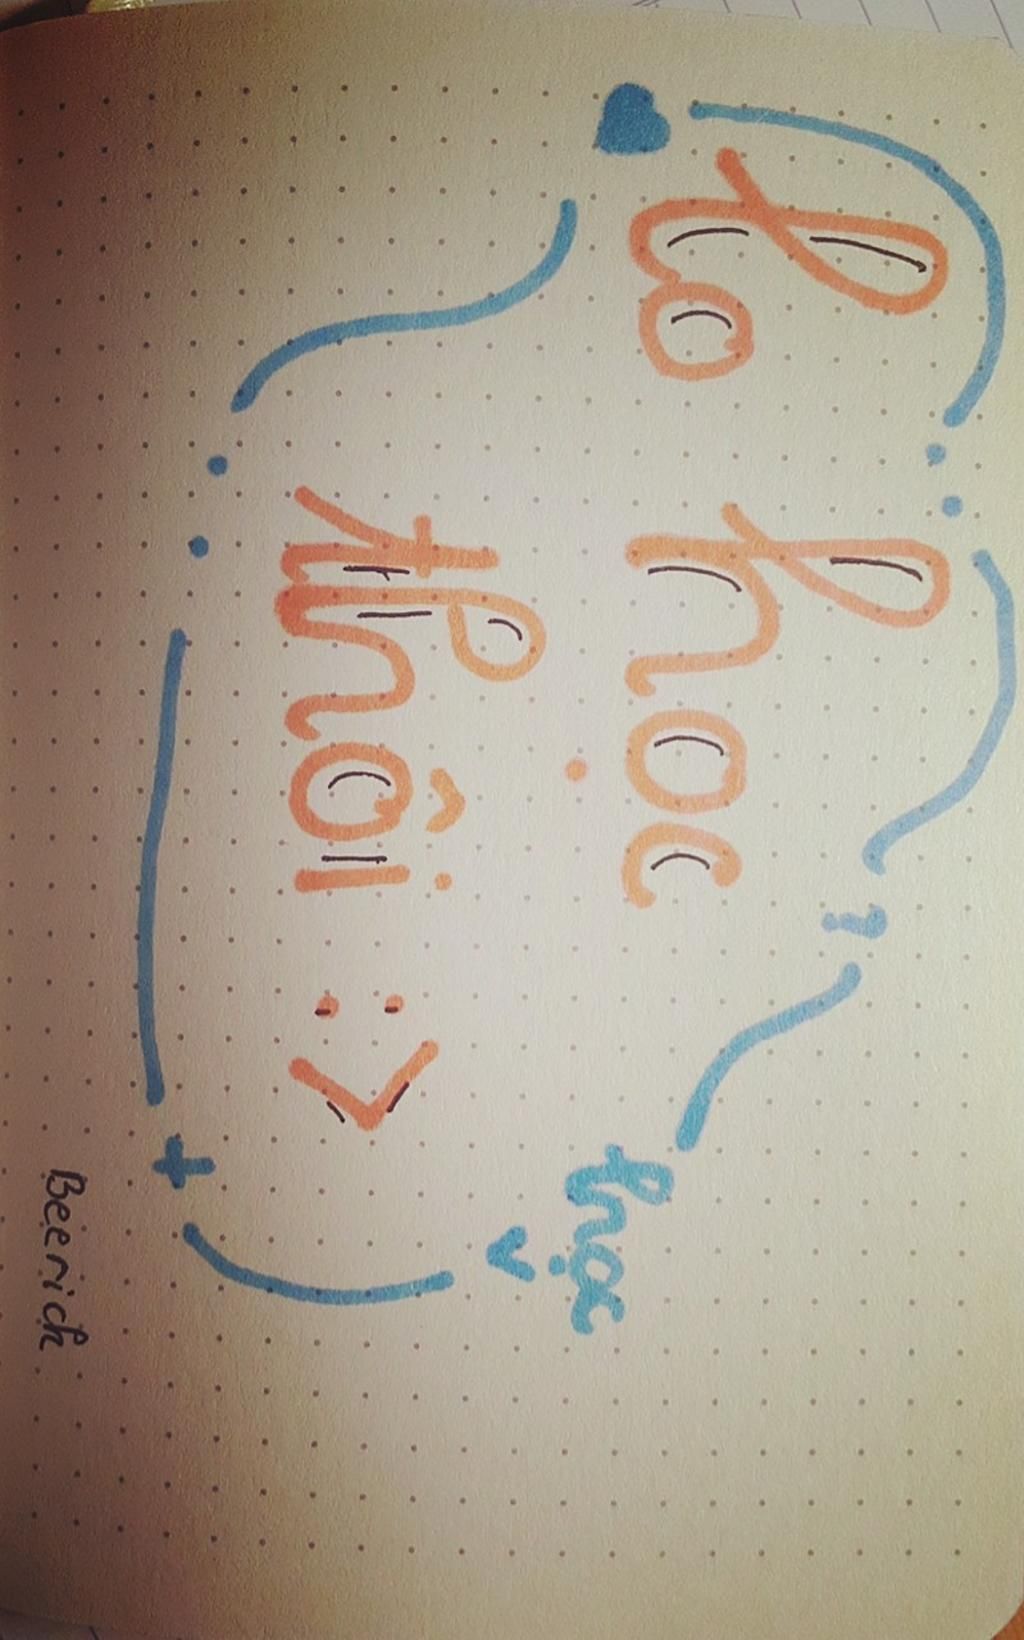 ?
Lo học
học
thôi :>
+
Beerich